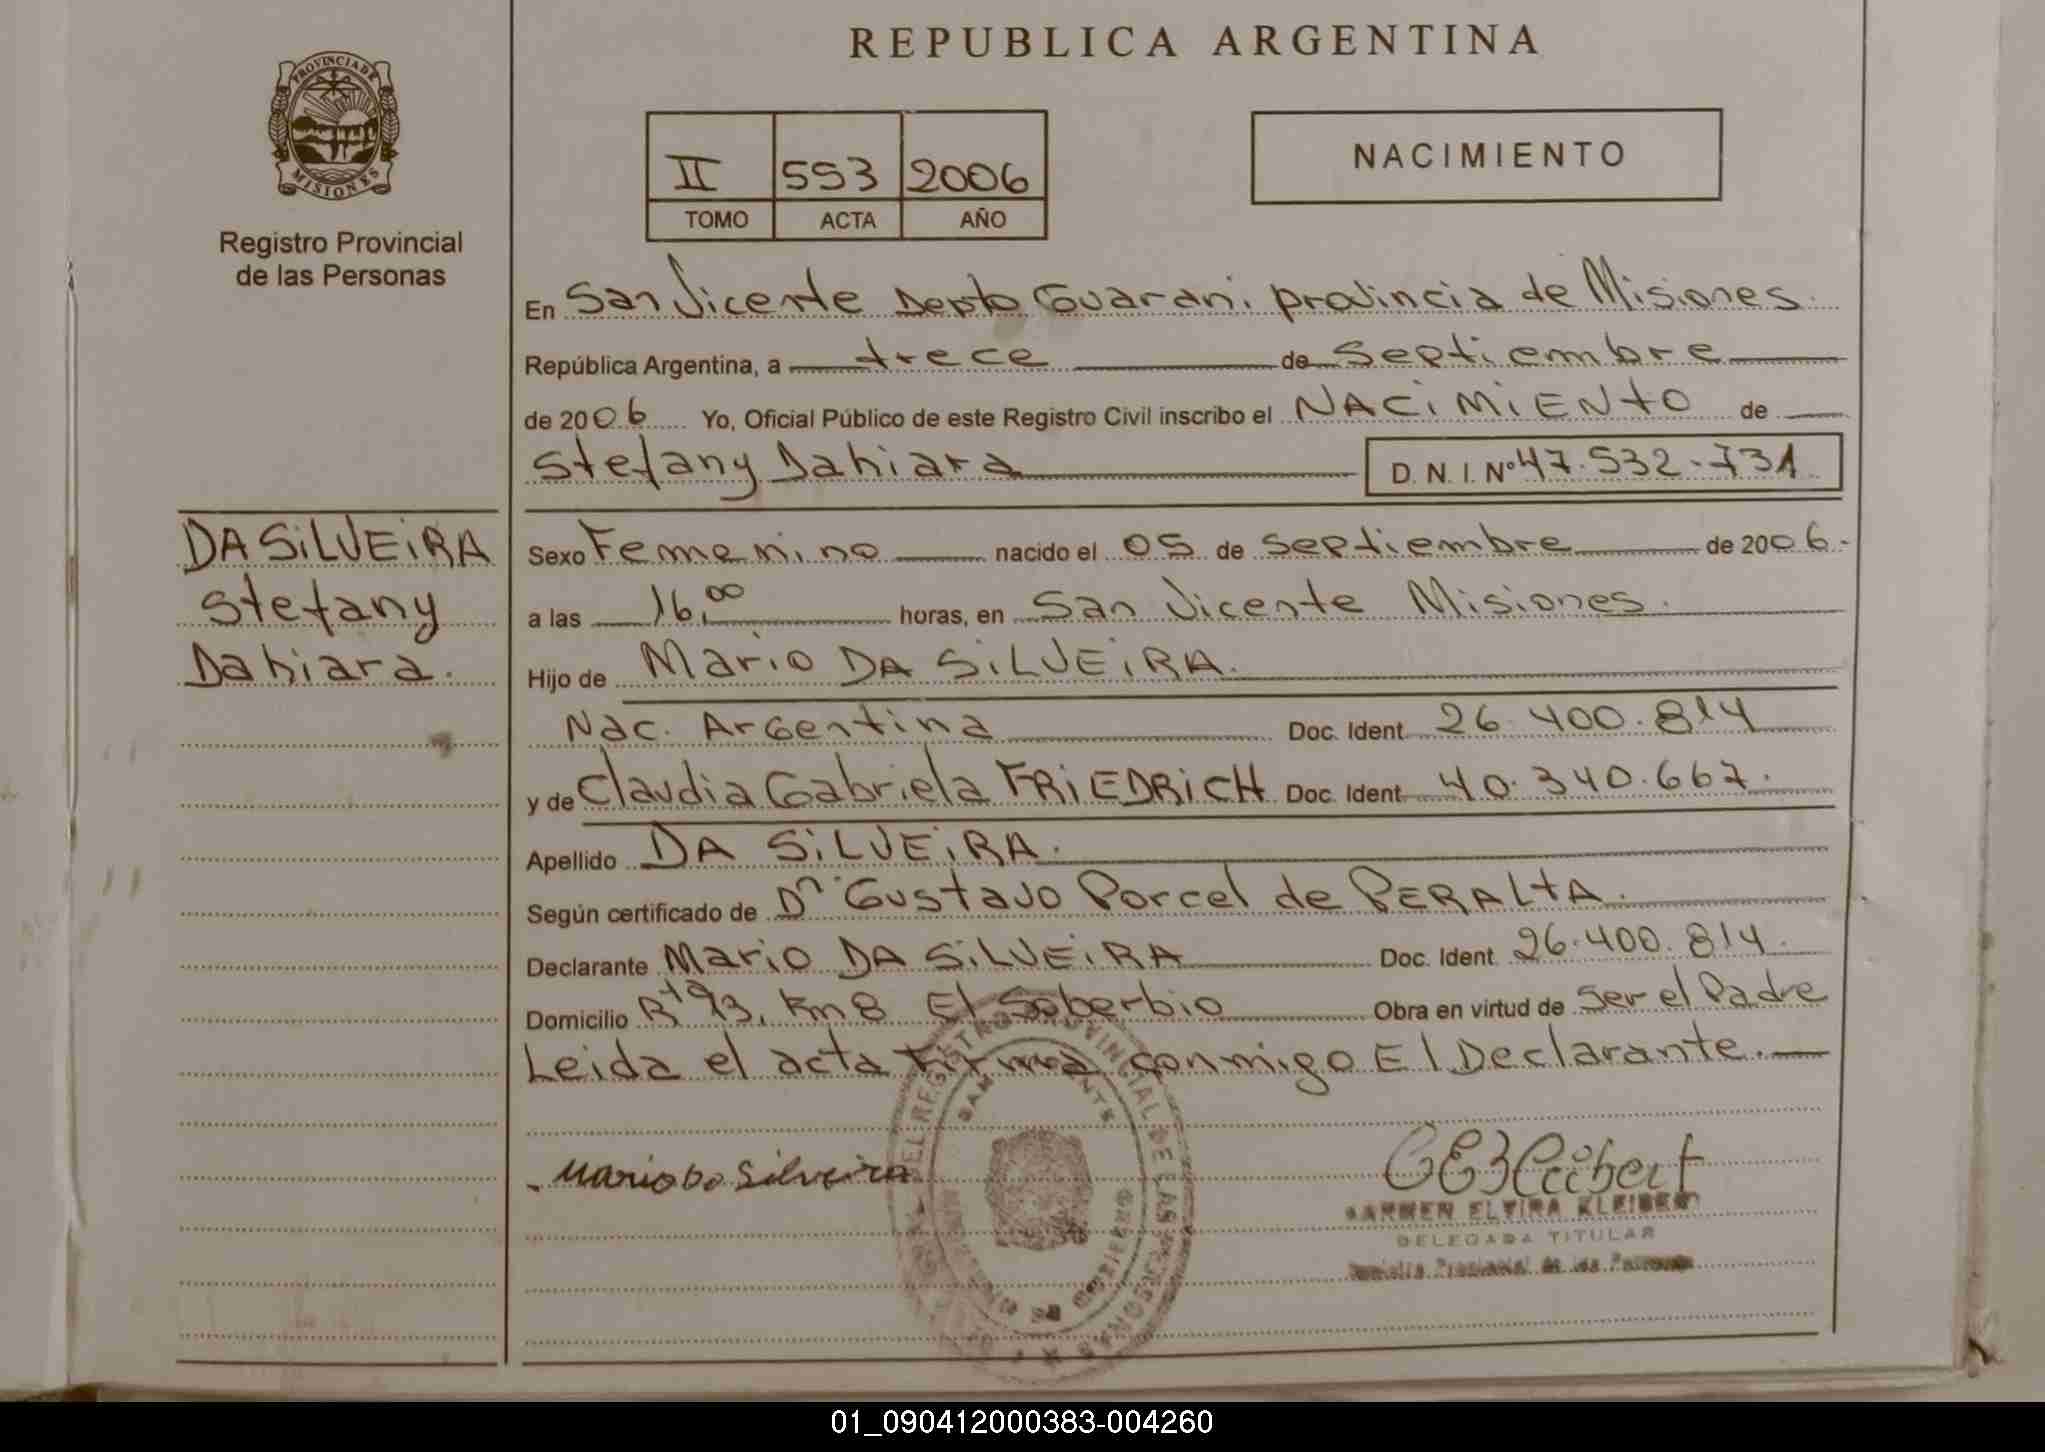 REPUBLICA ARGENTINA
PROVINCIA DE
MISIONES
Registro Provincial
de las Personas
II 553 2006
TOMO ACTA AÑO
NACIMIENTO
En San Vicente Depto Guarani provincia de Misiones.
República Argentina, a trece de septiembre
de 2006 Yo, Oficial Público de este Registro Civil inscribo el NACIMIENTO de
Stefany Dahiara D. N. I. Nº 47.532.731
DA SILVEIRA
Stefany
Dahiara.
Sexo Femenino nacido el 05 de septiembre de 2006.
a las 16,00 horas, en San Vicente Misiones.
Hijo de Mario DA SILVEIRA.
Nac. Argentina Doc. Ident. 26.400.814
y de Claudia Gabriela FRIEDRICH Doc. Ident. 40.340.667.
Apellido DA SILVEIRA.
Según certificado de Dr. Gustavo Porcel de PERALTA.
Declarante Mario DA SILVEIRA Doc. Ident. 26.400.814.
Domicilio Rta 13, Km 8 El Soberbio Obra en virtud de ser el Padre
Leida el acta firma conmigo El Declarante.
Mario Da Silveira
CARMEN ELVIRA KLEIBERT
DELEGADA TITULAR
Registro Provincial de las Personas
DEL REGISTRO PROVINCIAL DE LAS PERSONAS
SAN VICENTE
MINISTERIO DE GOBIERNO
01_090412000383-004260